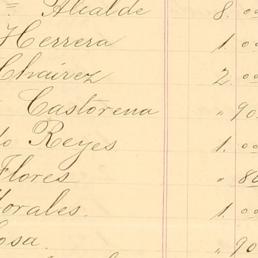 " Alcalde 8. 00
Herrera 1 00
Cháirez 2. 00
Castorena " 90
do Reyes 1. 00
Flores " 80
Morales. 1. 00
osa. " 90